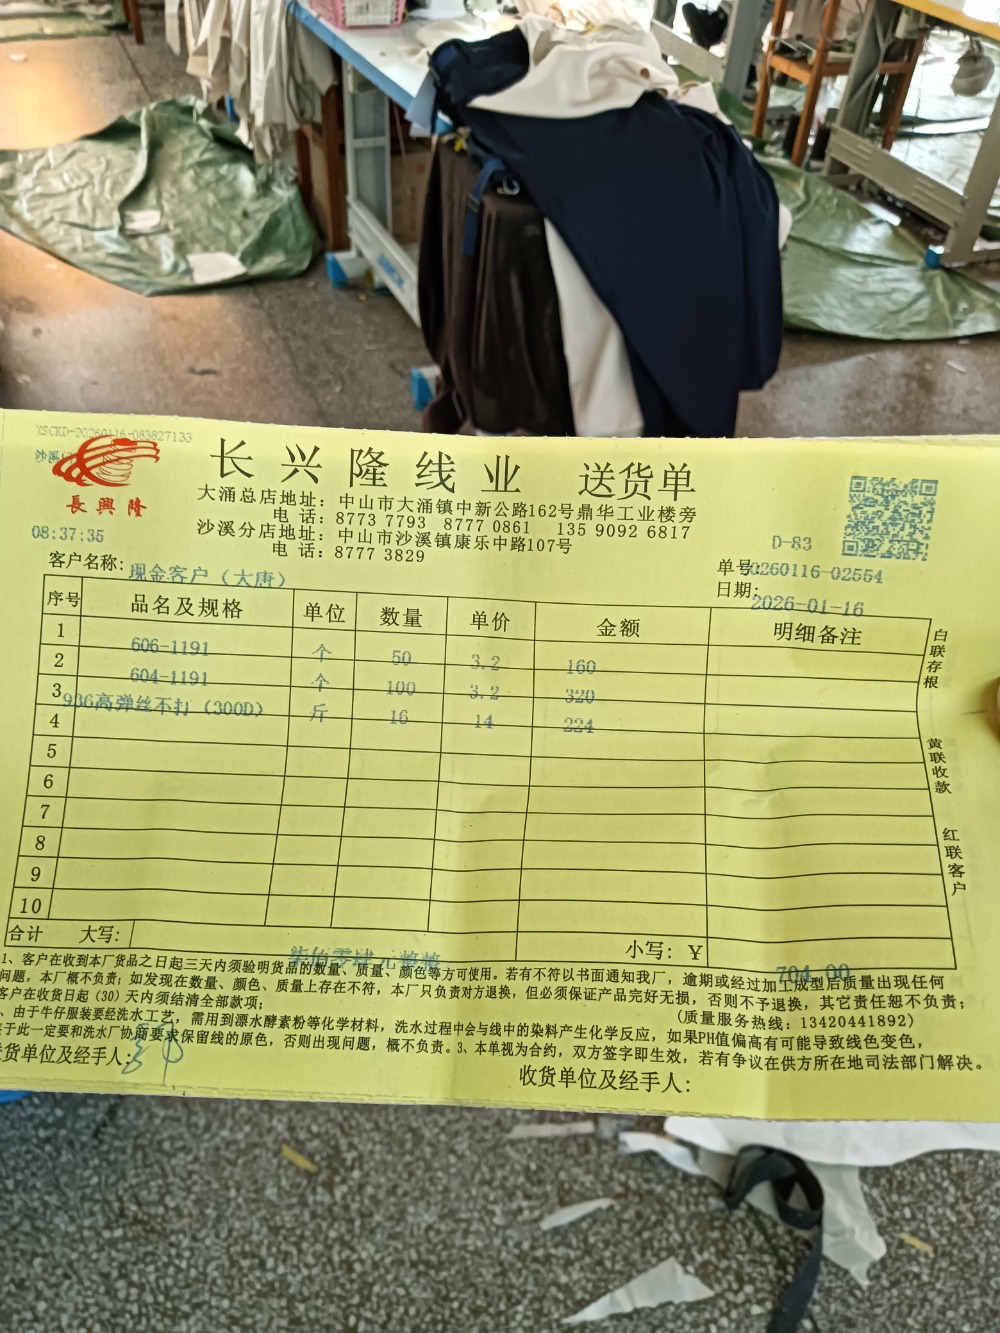 XSCKD-20260116-083827133
長興隆
长兴隆线业 送货单
大涌总店地址：中山市大涌镇中新公路162号鼎华工业楼旁
电话：8773 7793 8777 0861 135 9092 6817
沙溪分店地址：中山市沙溪镇康乐中路107号
电话：8777 3829
08:37:35
D-83
客户名称：现金客户（大唐）
单号：20260116-02554
日期：2026-01-16
序号 品名及规格 单位 数量 单价 金额 明细备注
1 606-1191 个 50 3.2 160
2 604-1191 个 100 3.2 320
3 936高弹丝不打（300D） 斤 16 14 224
4
5
6
7
8
9
10
合计 大写：柒佰零肆元整 小写：￥704.00
白联存根
黄联收款
红联客户
1、客户在收到本厂货品之日起三天内须验明货品的数量、质量、颜色等方可使用。若有不符以书面通知我厂，逾期或经过加工成型后质量出现任何
问题，本厂概不负责；如发现在数量、颜色、质量上存在不符，本厂只负责对方退换，但必须保证产品完好无损，否则不予退换，其它责任恕不负责；
客户在收货日起（30）天内须结清全部款项； （质量服务热线：13420441892）
、由于牛仔服装要经洗水工艺，需用到漂水酵素粉等化学材料，洗水过程中会与线中的染料产生化学反应，如果PH值偏高有可能导致线色变色，
于此一定要和洗水厂协商要求保留线的原色，否则出现问题，概不负责。3、本单视为合约，双方签字即生效，若有争议在供方所在地司法部门解决。
货单位及经手人：
收货单位及经手人：